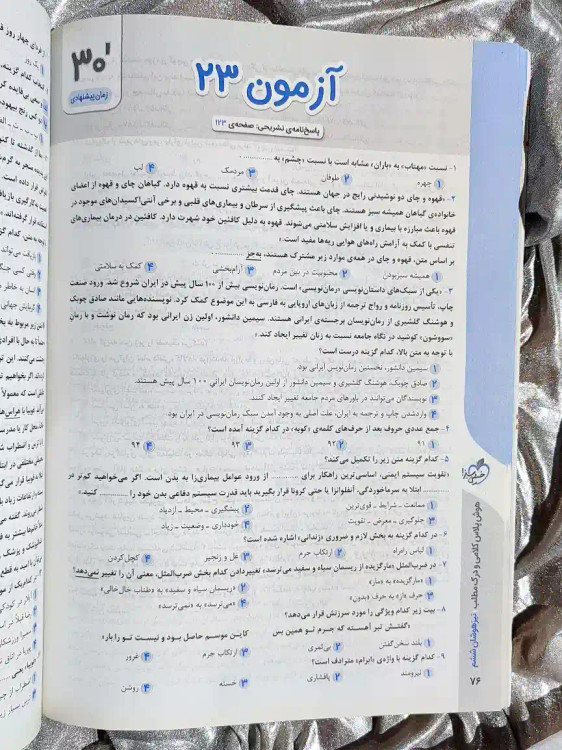 ۳۰'
زمان پیشنهادی
آزمون ۲۳
پاسخ‌نامه‌ی تشریحی: صفحه‌ی ۱۲۳
۱- نسبت «مهتاب» به «باران» مشابه است با نسبت «چشم» به ............ .
۱ چهره ۲ طوفان ۳ مردمک ۴ لب
۲- «قهوه و چای دو نوشیدنی رایج در جهان هستند. چای قدمت بیشتری نسبت به قهوه دارد. گیاهان چای و قهوه از اعضای
خانواده‌ی گیاهان همیشه سبز هستند. چای باعث پیشگیری از سرطان و بیماری‌های قلبی و برخی آنتی‌اکسیدان‌های موجود در
قهوه باعث مبارزه با بیماری و یا افزایش سلامتی می‌شوند. قهوه به دلیل کافئین خود شهرت دارد. کافئین در درمان بیماری‌های
تنفسی با کمک به آرامش راه‌های هوایی ریه‌ها مفید است.»
بر اساس متن، قهوه و چای در همه‌ی موارد زیر مشترک هستند، به‌جز ............
۱ همیشه سبزبودن ۲ محبوبیت در بین مردم ۳ آرام‌بخشی ۴ کمک به سلامتی
۳- «یکی از سبک‌های داستان‌نویسی «رمان‌نویسی» است. رمان‌نویسی از بیش از ۱۰۰ سال پیش در ایران شروع شد. ورود صنعت
چاپ، تأسیس روزنامه و رواج ترجمه از زبان‌های اروپایی به فارسی به این موضوع کمک کرد. نویسنده‌هایی مانند صادق چوبک
و هوشنگ گلشیری از رمان‌نویسان برجسته‌ی ایرانی هستند. سیمین دانشور، اولین زن ایرانی بود که رمان نوشت و با رمان
«سووشون» کوشید در نگاه جامعه نسبت به زنان تغییر ایجاد کند.»
با توجه به متن بالا، کدام گزینه درست است؟
۱ سیمین دانشور، نخستین رمان‌نویس ایرانی بود.
۲ صادق چوبک، هوشنگ گلشیری و سیمین دانشور از اولین رمان‌نویسان ایرانی ۱۰۰ سال پیش هستند.
۳ نویسندگان می‌توانند در باورهای مردم جامعه تغییر ایجاد کنند.
۴ واردشدن چاپ و ترجمه به ایران، علت اصلی به وجود آمدن سبک رمان‌نویسی در ایران بود
۴- جمع عددی حروف بعد از حرف‌های کلمه‌ی «کوبه» در کدام گزینه آمده است؟
۱ ۹۱ ۲ ۹۲ ۳ ۹۳ ۴ ۹۴
۵- کدام گزینه متن زیر را تکمیل می‌کند؟
«تقویت سیستم ایمنی، اساسی‌ترین راهکار برای ............ از ورود عوامل بیماری‌زا به بدن است. اگر می‌خواهید کم‌تر در
............ ابتلا به سرماخوردگی، آنفلوانزا یا حتی کرونا قرار بگیرید باید قدرت سیستم دفاعی بدن خود را ............ کنید»
۱ ممانعت - شرایط - قوی‌ترین ۲ پیشگیری - محیط - ازدیاد
۳ جلوگیری - معرض - تقویت ۴ خودداری - وضعیت - زیاد
۶- در کدام گزینه به بخش لازم و ضروری «زندانی» اشاره شده است؟
۱ لباس راه‌راه ۲ ارتکاب جرم ۳ غل و زنجیر ۴ کچل‌کردن
۷- در ضرب‌المثل «مارگزیده از ریسمان سیاه و سفید می‌ترسد» تغییردادن کدام بخش ضرب‌المثل، معنی آن را تغییر نمی‌دهد؟
۱ «مارگزیده» به «مار» ۲ «ریسمان سیاه و سفید» به «طناب خال‌خالی»
۳ حرف «از» به حرف «بدون» ۴ «می‌ترسد» به «نمی‌ترسد»
۸- بیت زیر کدام ویژگی را مورد سرزنش قرار می‌دهد؟
«گفتنش تیر آهسته که جرم تو همین بس کاین موسم حاصل بود و نیست تو را بار»
۱ بلند سخن‌گفتن ۲ بی‌ثمری ۳ ارتکاب جرم ۴ غرور
۹- کدام گزینه با واژه‌ی «ابرام» مترادف است؟
۱ نیرومند ۲ پافشاری ۳ خسته ۴ روشن
خیلی سبز
هوش پلاس کلامی و درک مطلب تیزهوشان ششم
۷۶